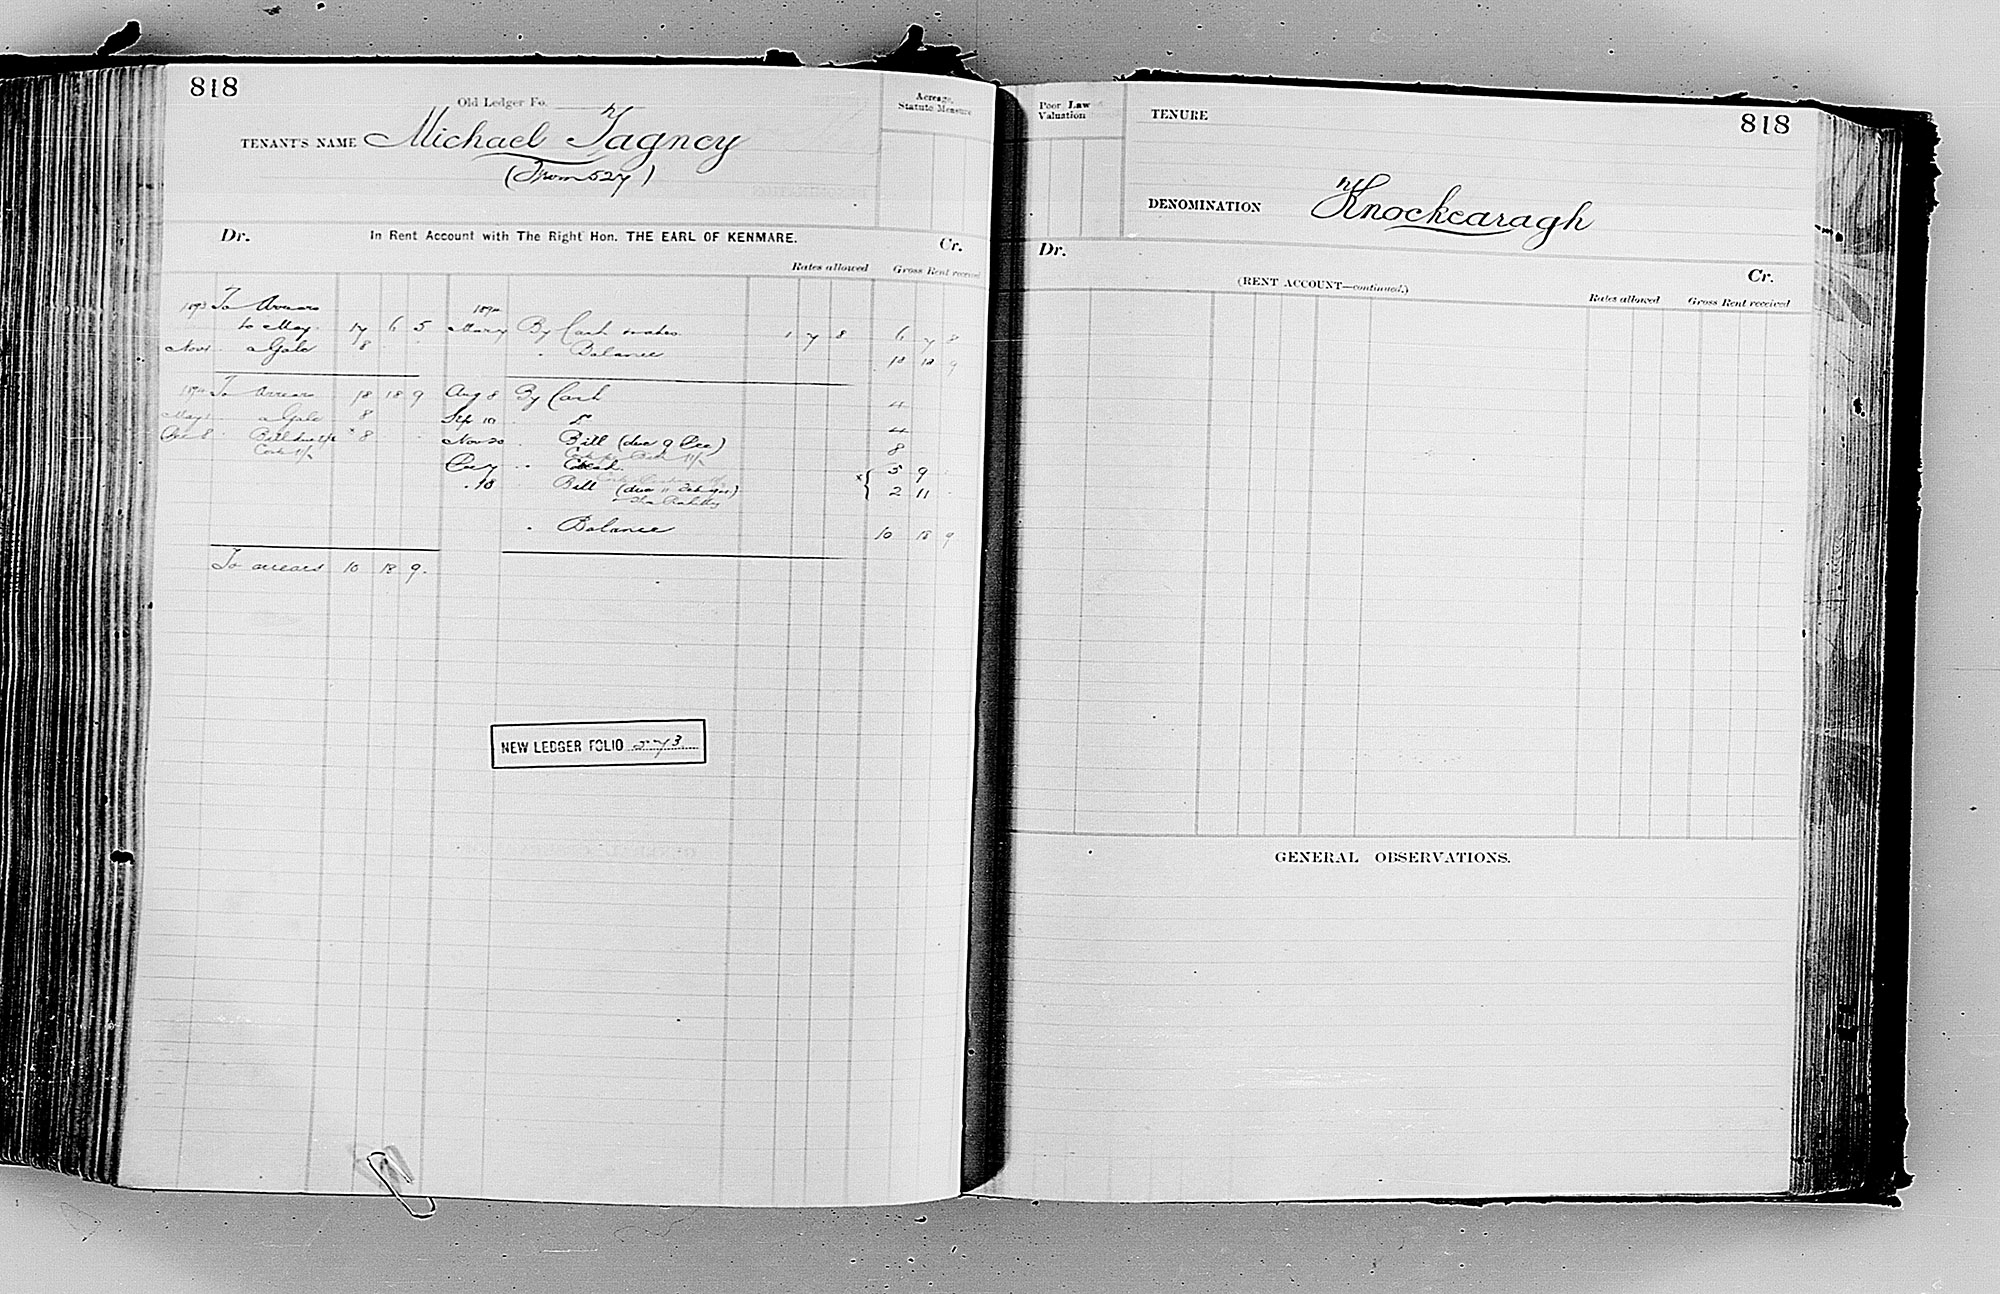 818
Old Ledger Fo.
TENANT'S NAME Michael Tagney
(From 527)
Acreage, Statute Measure
Dr. In Rent Account with The Right Hon. THE EARL OF KENMARE. Cr.
Rates allowed Gross Rent received
1893 To Arrears 1894
to May 17 6 5 By Cash 1 7 8 6 7 8
Novr a Gale 8 " Balance 18 18 9
1894 To Arrears 18 18 9 Aug 8 By Cash 4
May 1 a Gale 8 Sep 10 4
Dec 8 8 Nov 20 Bill (due 9 Dec) 8
Cash 5 9
18 Bill 2 11
" Balance 10 18 9
To arrears 10 18 9.
NEW LEDGER FOLIO 273
Poor Law Valuation
TENURE
818
DENOMINATION Knockearagh
Dr. Cr.
(RENT ACCOUNT—continued.)
Rates allowed Gross Rent received
GENERAL OBSERVATIONS.